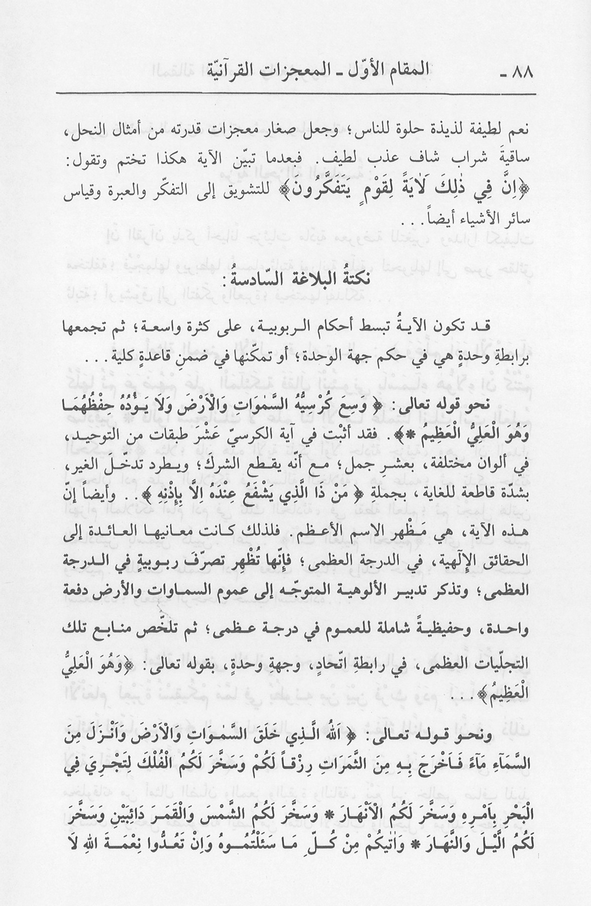 ٨٨ ـ المقام الأوّل ـ المعجزات القرآنيّة
نعم لطيفة لذيذة حلوة للناس؛ وجعل صغار معجزات قدرته من أمثال النحل،
ساقيةَ شراب شاف عذب لطيف. فبعدما تبيّن الآية هكذا تختم وتقول:
﴿اِنَّ فِي ذٰلِكَ لَاٰيَةً لِقَوْمٍ يَتَفَكَّرُونَ﴾ للتشويق إلى التفكّر والعبرة وقياس
سائر الأشياء أيضاً...
نكتةُ البلاغة السّادسةُ:
قد تكون الآيةُ تبسط أحكام الربوبية، على كثرة واسعة؛ ثم تجمعها
برابطةِ وحدةٍ هي في حكم جهة الوحدة؛ أو تمكّنها في ضمنِ قاعدةٍ كلية...
نحو قوله تعالى: ﴿ وَسِعَ كُرْسِيُّهُ السَّمٰوَاتِ وَالْاَرْضَ وَلَا يَؤُدُهُ حِفْظُهُمَا
وَهُوَ الْعَلِيُّ الْعَظِيمُ *﴾. فقد أثبْت في آية الكرسيّ عَشْرَ طبقات من التوحيد،
في ألوان مختلفة، بعشرِ جمل؛ مـع أنّه يقـطع الشركَ؛ ويـطرد تدخّـلَ الغير،
بشدّة قاطعة للغاية، بجملةِ ﴿ مَنْ ذَا الَّذِي يَشْفَعُ عِنْدَهُ اِلَّا بِاِذْنِهِ ﴾.. وأيضاً إنّ
هـذه الآية، هي مَـظْهر الإسم الأعظـم. فلذلك كـانت معـانيهـا العـائـدة إلى
الحقائق الإلٓهية، في الدرجة العظمى؛ فإنّها تُظْهِر تصرّفَ ربـوبيةٍ في الـدرجة
العظمى؛ وتذكر تدبير الألوهيـة المتوجّـه إلى عموم السمـاوات والأرض دفعة
واحـدة، وحفيظيـةً شاملة للعمـوم في درجة عـظمى؛ ثم تلخّص منـابـع تلك
التجلّيات العظمى، في رابطةِ اتّحادٍ، وجهةِ وحدةٍ، بقوله تعالى: ﴿وَهُوَ الْعَلِيُّ
الْعَظِيمُ﴾...
ونحـو قـولـه تعـالى: ﴿ اَللهُ الَّـذِي خَلَقَ السَّمٰـوَاتِ وَالْاَرْضَ وَاَنْـزَلَ مِنَ
السَّمَآءِ مَآءً فَـاَخْرَجَ بِـهِ مِنَ الثَّمَرَاتِ رِزْقـاً لَكُمْ وَسَخَّرَ لَكُمُ الْفُلْكَ لِتَجْرِيَ فِي
الْبَحْرِ بِاَمْرِهِ وَسَخَّرَ لَكُمُ الْاَنْهَارَ * وَسَخَّرَ لَكُمُ الشَّمْسَ وَالْقَمَرَ دَائِبَيْنِ وَسَخَّرَ
لَكُمُ الَّيْلَ وَالنَّهَارَ * وَاٰتٰيكُمْ مِنْ كُـلِّ مَـا سَئَلْتُمُـوهُ وَاِنْ تَعُدُّوا نِعْمَـةَ اللهِ لَا